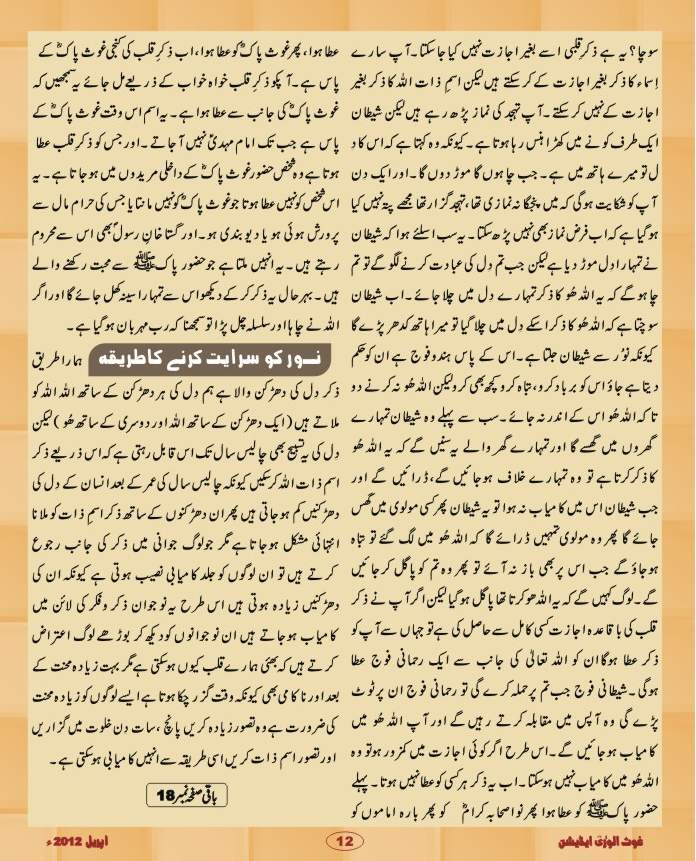 سوچا؟ یہ ہے ذکرِ قلبی اسے بغیر اجازت نہیں کیا جاسکتا۔ آپ سارے
اِسماء کا ذکر بغیر اجازت کے کرسکتے ہیں لیکن اسمِ ذات اللہ کا ذکر بغیر
اجازت کے نہیں کرسکتے۔ آپ تہجد کی نماز پڑھ رہے ہیں لیکن شیطان
ایک طرف کونے میں کھڑا ہنس رہا ہوتا ہے۔ کیونکہ وہ کہتا ہے کہ اس کا د
ل تو میرے ہاتھ میں ہے۔ جب چاہوں گا موڑ دوں گا۔ اور ایک دن
آپ کو شکایت ہوگی کہ میں پنجگا نہ نمازی تھا، تہجد گزار تھا مجھے پتہ نہیں کیا
ہو گیا ہے کہ اب فرض نماز بھی نہیں پڑھ سکتا۔ یہ سب اسلئے ہوا کہ شیطان
نے تمہارا دل موڑ دیا ہے لیکن جب تم دل کی عبادت کرنے لگو گے تو تم
چاہو گے کہ یہ اللہ ھُو کا ذکر تمہارے دل میں چلا جائے۔ اب شیطان
سوچتا ہے کہ اللہ ھُو کا ذکر اسکے دل میں چلا گیا تو میرا ہاتھ کدھر پڑے گا
کیونکہ نُور سے شیطان جلتا ہے۔ اس کے پاس ہندو فوج ہے ان کو حکم
دیتا ہے جاؤ اس کو برباد کرو، تباہ کرو کچھ بھی کرو لیکن اللہ ھُو نہ کرنے دو
تا کہ اللہ ھُو اس کے اندر نہ جائے۔ سب سے پہلے وہ شیطان تمہارے
گھروں میں گھسے گا اور تمہارے گھر والے یہ سنیں گے کہ یہ اللہ ھُو
کا ذکر کرتا ہے تو وہ تمہارے خلاف ہوجائیں گے، ڈرائیں گے اور
جب شیطان اس میں کامیاب نہ ہوا تو یہ شیطان پھر کسی مولوی میں گھس
جائے گا پھر وہ مولوی تمہیں ڈرائے گا کہ اللہ ھُو میں لگ گئے تو تباہ
ہوجاؤ گے جب اس پر بھی باز نہ آئے تو پھر وہ تم کو پاگل کر جائیں
گے۔ لوگ کہیں گے کہ یہ اللہ ھُو کرتا تھا پاگل ہو گیا لیکن اگر آپ نے ذکر
قلب کی با قاعدہ اجازت کسی کامل سے حاصل کی ہے تو جہاں سے آپ کو
ذکر عطا ہوگا ان کو اللہ تعالیٰ کی جانب سے ایک رحمانی فوج عطا
ہوگی۔ شیطانی فوج جب تم پر حملہ کرے گی تو رحمانی فوج ان پر ٹوٹ
پڑے گی وہ آپس میں مقابلہ کرتے رہیں گے اور آپ اللہ ھُو میں
کامیاب ہوجائیں گے۔ اس طرح اگر کوئی اجازت میں کمزور ہو تو وہ
اللہ ھُو میں کامیاب نہیں ہوسکتا۔ اب یہ ذکر ہر کسی کو عطا نہیں ہوتا۔ پہلے
حضور پاک ﷺ کو عطا ہوا پھر نو اصحابہ کرامؓ کو پھر بارہ اماموں کو
عطا ہوا، پھر غوث پاکؓ کو عطا ہوا، اب ذکرِ قلب کی کنجی غوث پاکؓ کے
پاس ہے۔ آپکو ذکرِ قلب خواہ خواب کے ذریعے مل جائے یہ سمجھیں کہ
غوث پاکؓ کی جانب سے عطا ہوا ہے۔ یہ اسم اس وقت غوث پاکؓ کے
پاس ہے جب تک امام مہدیؑ نہیں آجاتے۔ اور جس کو ذکر قلب عطا
ہوتا ہے وہ شخص حضور غوث پاکؓ کے داخلی مریدوں میں ہوجاتا ہے۔ یہ
اس شخص کو نہیں عطا ہوتا جو غوث پاکؓ کو نہیں مانتا یا جس کی حرام مال سے
پرورش ہوئی ہو یا دیوبندی ہو۔ اور گستاخانِ رسولؐ بھی اس سے محروم
رہتے ہیں۔ یہ انہیں ملتا ہے جو حضور پاک ﷺ سے محبت رکھنے والے
ہیں۔ بہر حال یہ ذکر کر کے دیکھو اس سے تمہارا سینہ کھل جائے گا اور اگر
اللہ نے چاہا اور سلسلہ چل پڑا تو سمجھنا کہ رب مہربان ہو گیا ہے۔
نــور کو سرایت کرنے کا طریقہ ہمارا طریق
ذکر دل کی دھڑکن والا ہے ہم دل کی ہر دھڑکن کے ساتھ اللہ اللہ کو
ملاتے ہیں (ایک دھڑکن کے ساتھ اللہ اور دوسری کے ساتھ ھُو) لیکن
دل کی یہ تسبیح بھی چالیس سال تک اس قابل رہتی ہے کہ اس ذریعے ذکر
اسم ذات اللہ کرسکیں کیونکہ چالیس سال کی عمر کے بعد انسان کے دل کی
دھڑکنیں کم ہوجاتی ہیں پھر ان دھڑکنوں کے ساتھ ذکر اسمِ ذات کو ملانا
انتہائی مشکل ہوجاتا ہے مگر جو لوگ جوانی میں ذکر کی جانب رجوع
کرتے ہیں تو ان لوگوں کو جلد کامیابی نصیب ہوتی ہے کیونکہ ان کی
دھڑکنیں زیادہ ہوتی ہیں اس طرح یہ نوجوان ذکر و فکر کی لائن میں
کامیاب ہوجاتے ہیں ان نوجوانوں کو دیکھ کر بوڑھے لوگ اعتراض
کرتے ہیں کہ بھئی ہمارے قلب کیوں ہوسکتی ہے مگر بہت زیادہ محنت کے
بعد اور نا کامی بھی کیونکہ وقت گزر چکا ہوتا ہے ایسے لوگوں کو زیادہ محنت
کی ضرورت ہے وہ تصور زیادہ کریں پانچ، سات دن خلوت میں گزاریں
اور تصور اسم ذات کریں اسی طریقہ سے انہیں کامیابی ہوسکتی ہے۔
باقی صفحہ نمبر 18
غوث الوریٰ ایڈیشن
12
اپریل 2012ء